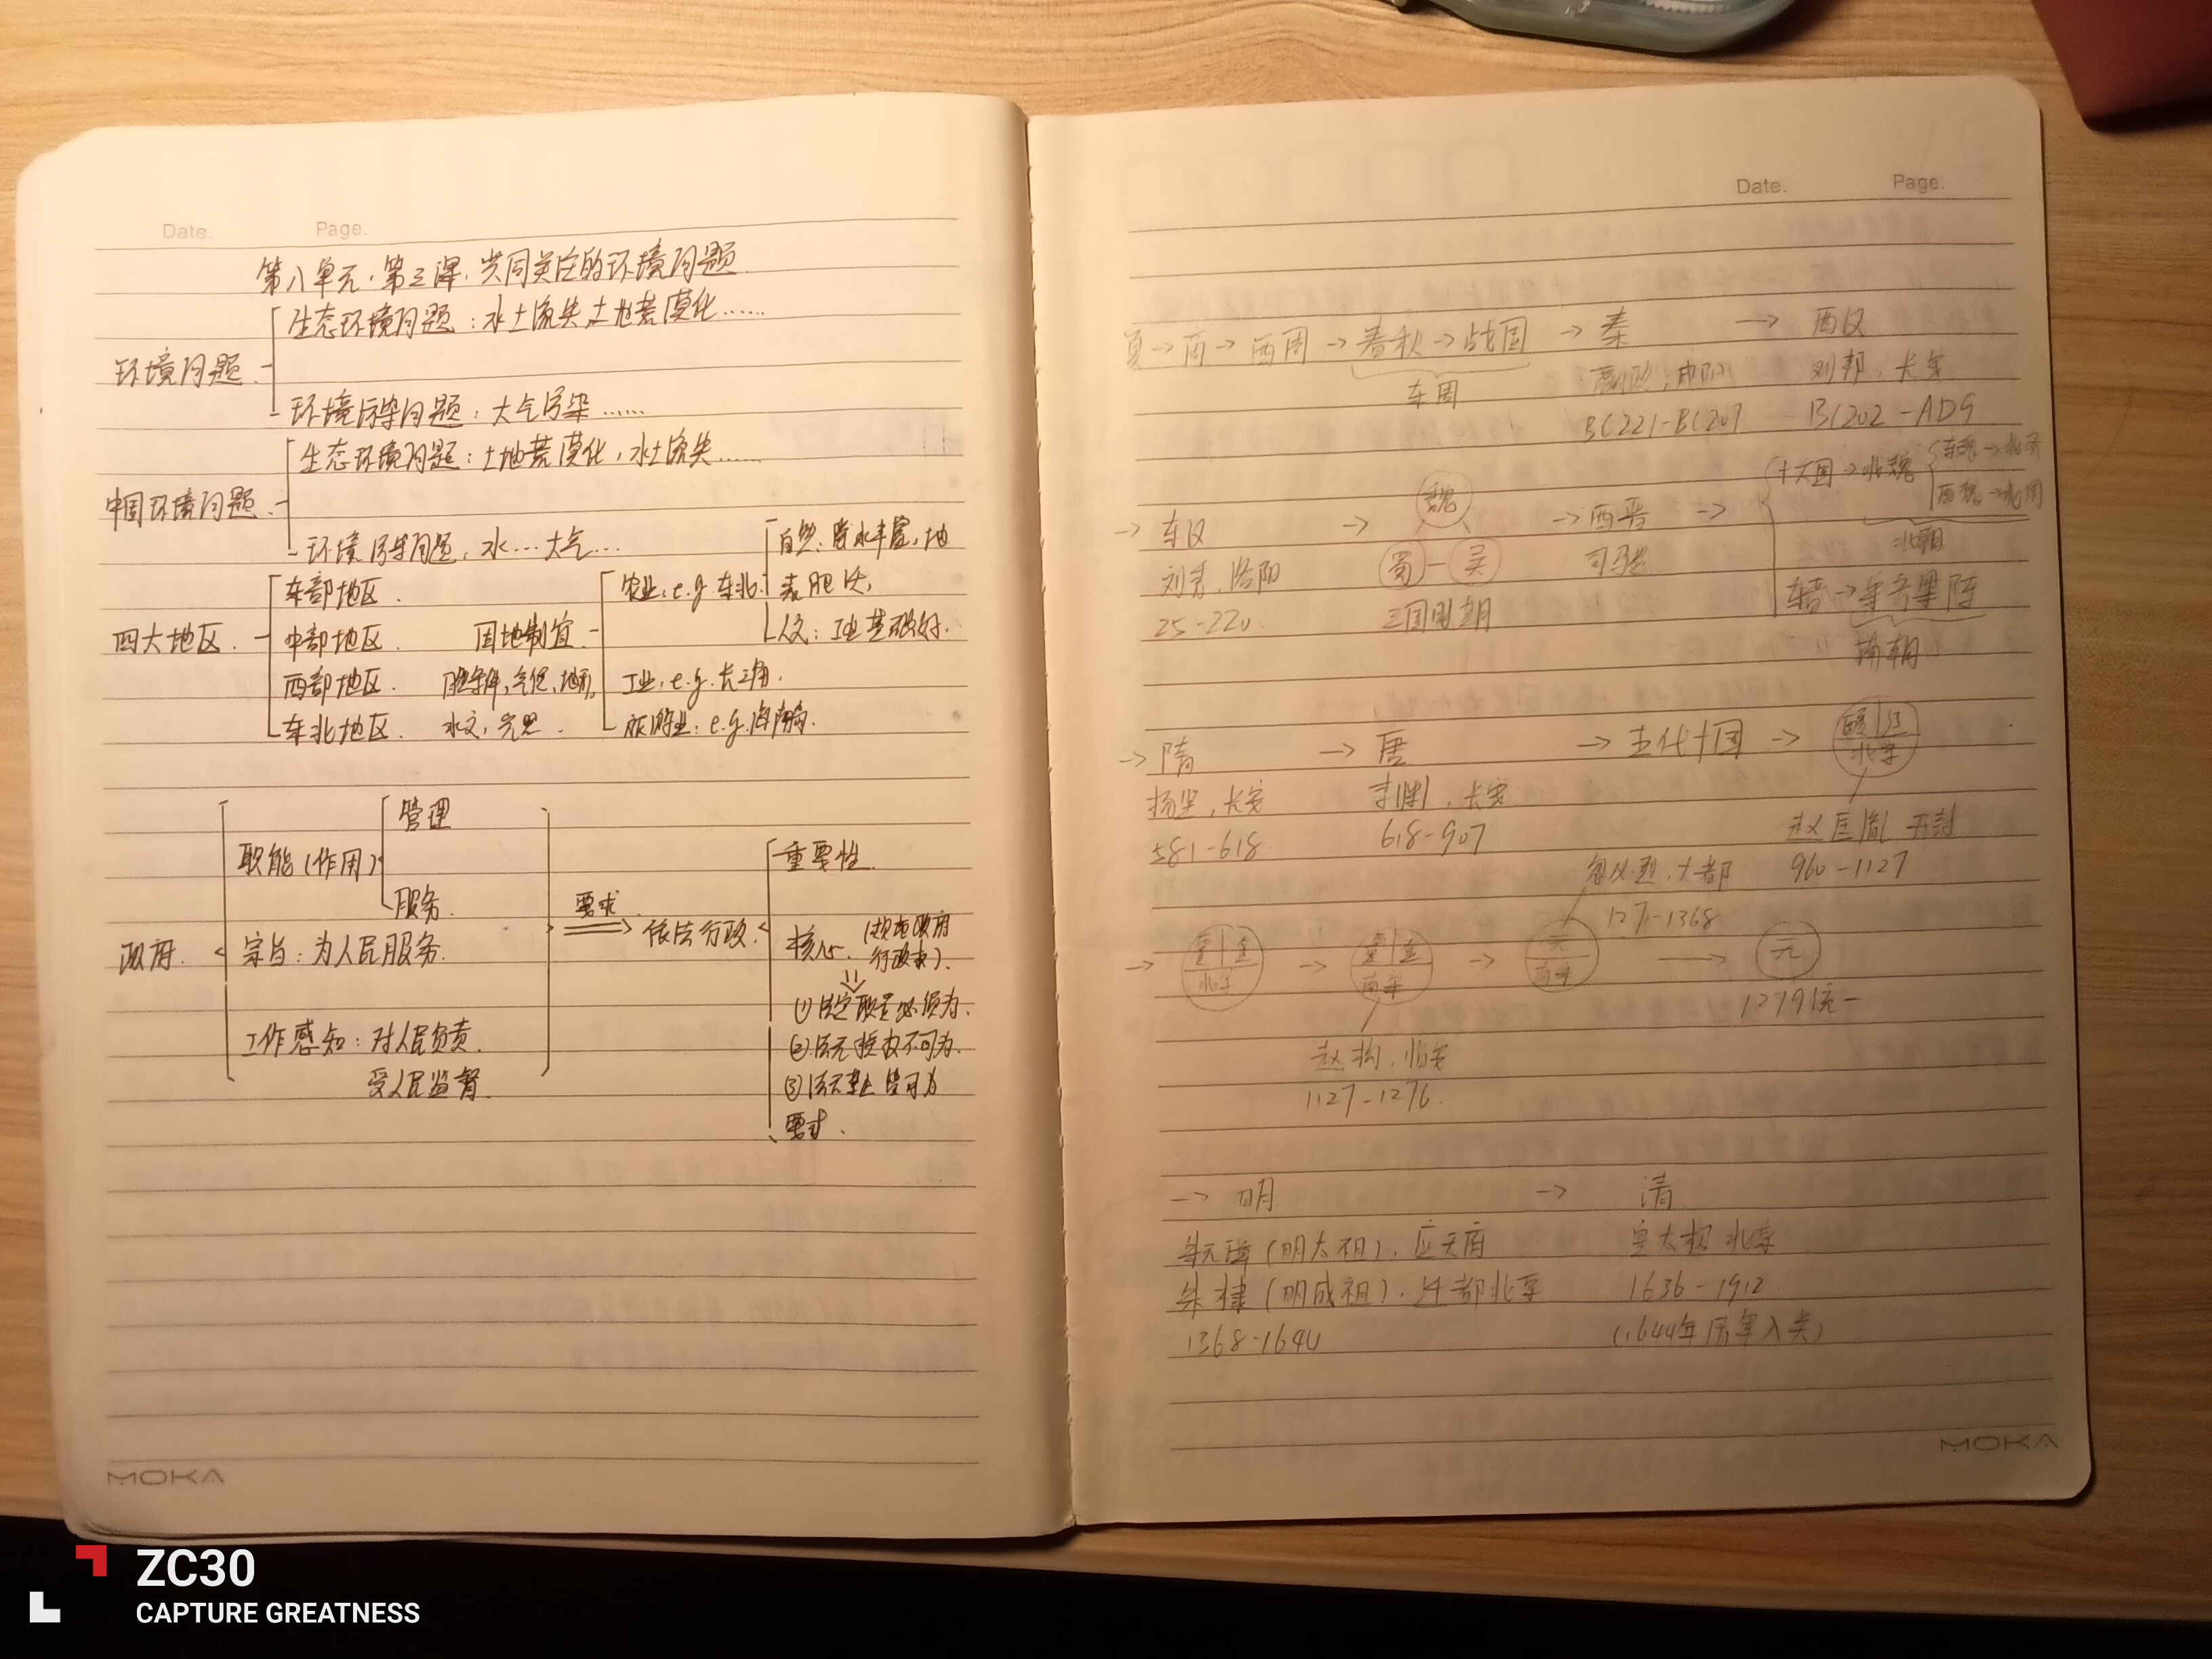 Date. Page.
第八单元·第三课·共同关注的环境问题
生态环境问题：水土流失,土地荒漠化……
环境问题
环境污染问题：大气污染……
生态环境问题：土地荒漠化,水土流失……
中国环境问题
环境污染问题,水…大气…
四大地区
东部地区.
中部地区.
西部地区.
东北地区.
因地制宜
气候,地形,
水文,
农业,e.g.东北
自然：水丰富,地
表肥沃,
人文：工业基础好.
工业,e.g.长三角.
旅游业：e.g.海南.
政府.
职能(作用)
管理
服务.
宗旨：为人民服务.
工作 : 对人民负责.
受人民监督.
要求
依法行政.
重要性.
核心. (规范政府
行政权).
(1)法定职责必须为.
(2)法无授权不可为.
(3)法无禁止皆可为
要求.
MOKA
Date. Page.
夏→商→西周→春秋→战国→秦→西汉
东周
嬴政,咸阳 刘邦,长安
BC221-BC207 BC202-AD9
→东汉→魏→西晋→
蜀—吴
刘秀,洛阳
25-220.
三国时期
司马炎
十六国→北魏
东魏→北齐
西魏→北周
北朝
东晋→宋齐梁陈
南朝
→隋→唐→五代十国→
杨坚,长安 李渊,长安
581-618 618-907
辽
北宋
赵匡胤 开封
960-1127
忽必烈,大都
1271-1368
→ 金
北宋
→ 金
南宋
→元
南宋
→元
1279统一
赵构.临安
1127-1276.
→明→清
朱元璋(明太祖).应天府 皇太极 北京
朱棣(明成祖).迁都北京 1636-1912
1368-1644 (1644年清军入关)
MOKA
ZC30
CAPTURE GREATNESS